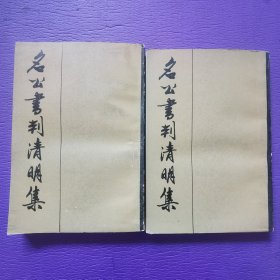 名公书判清明集
名公书判清明集